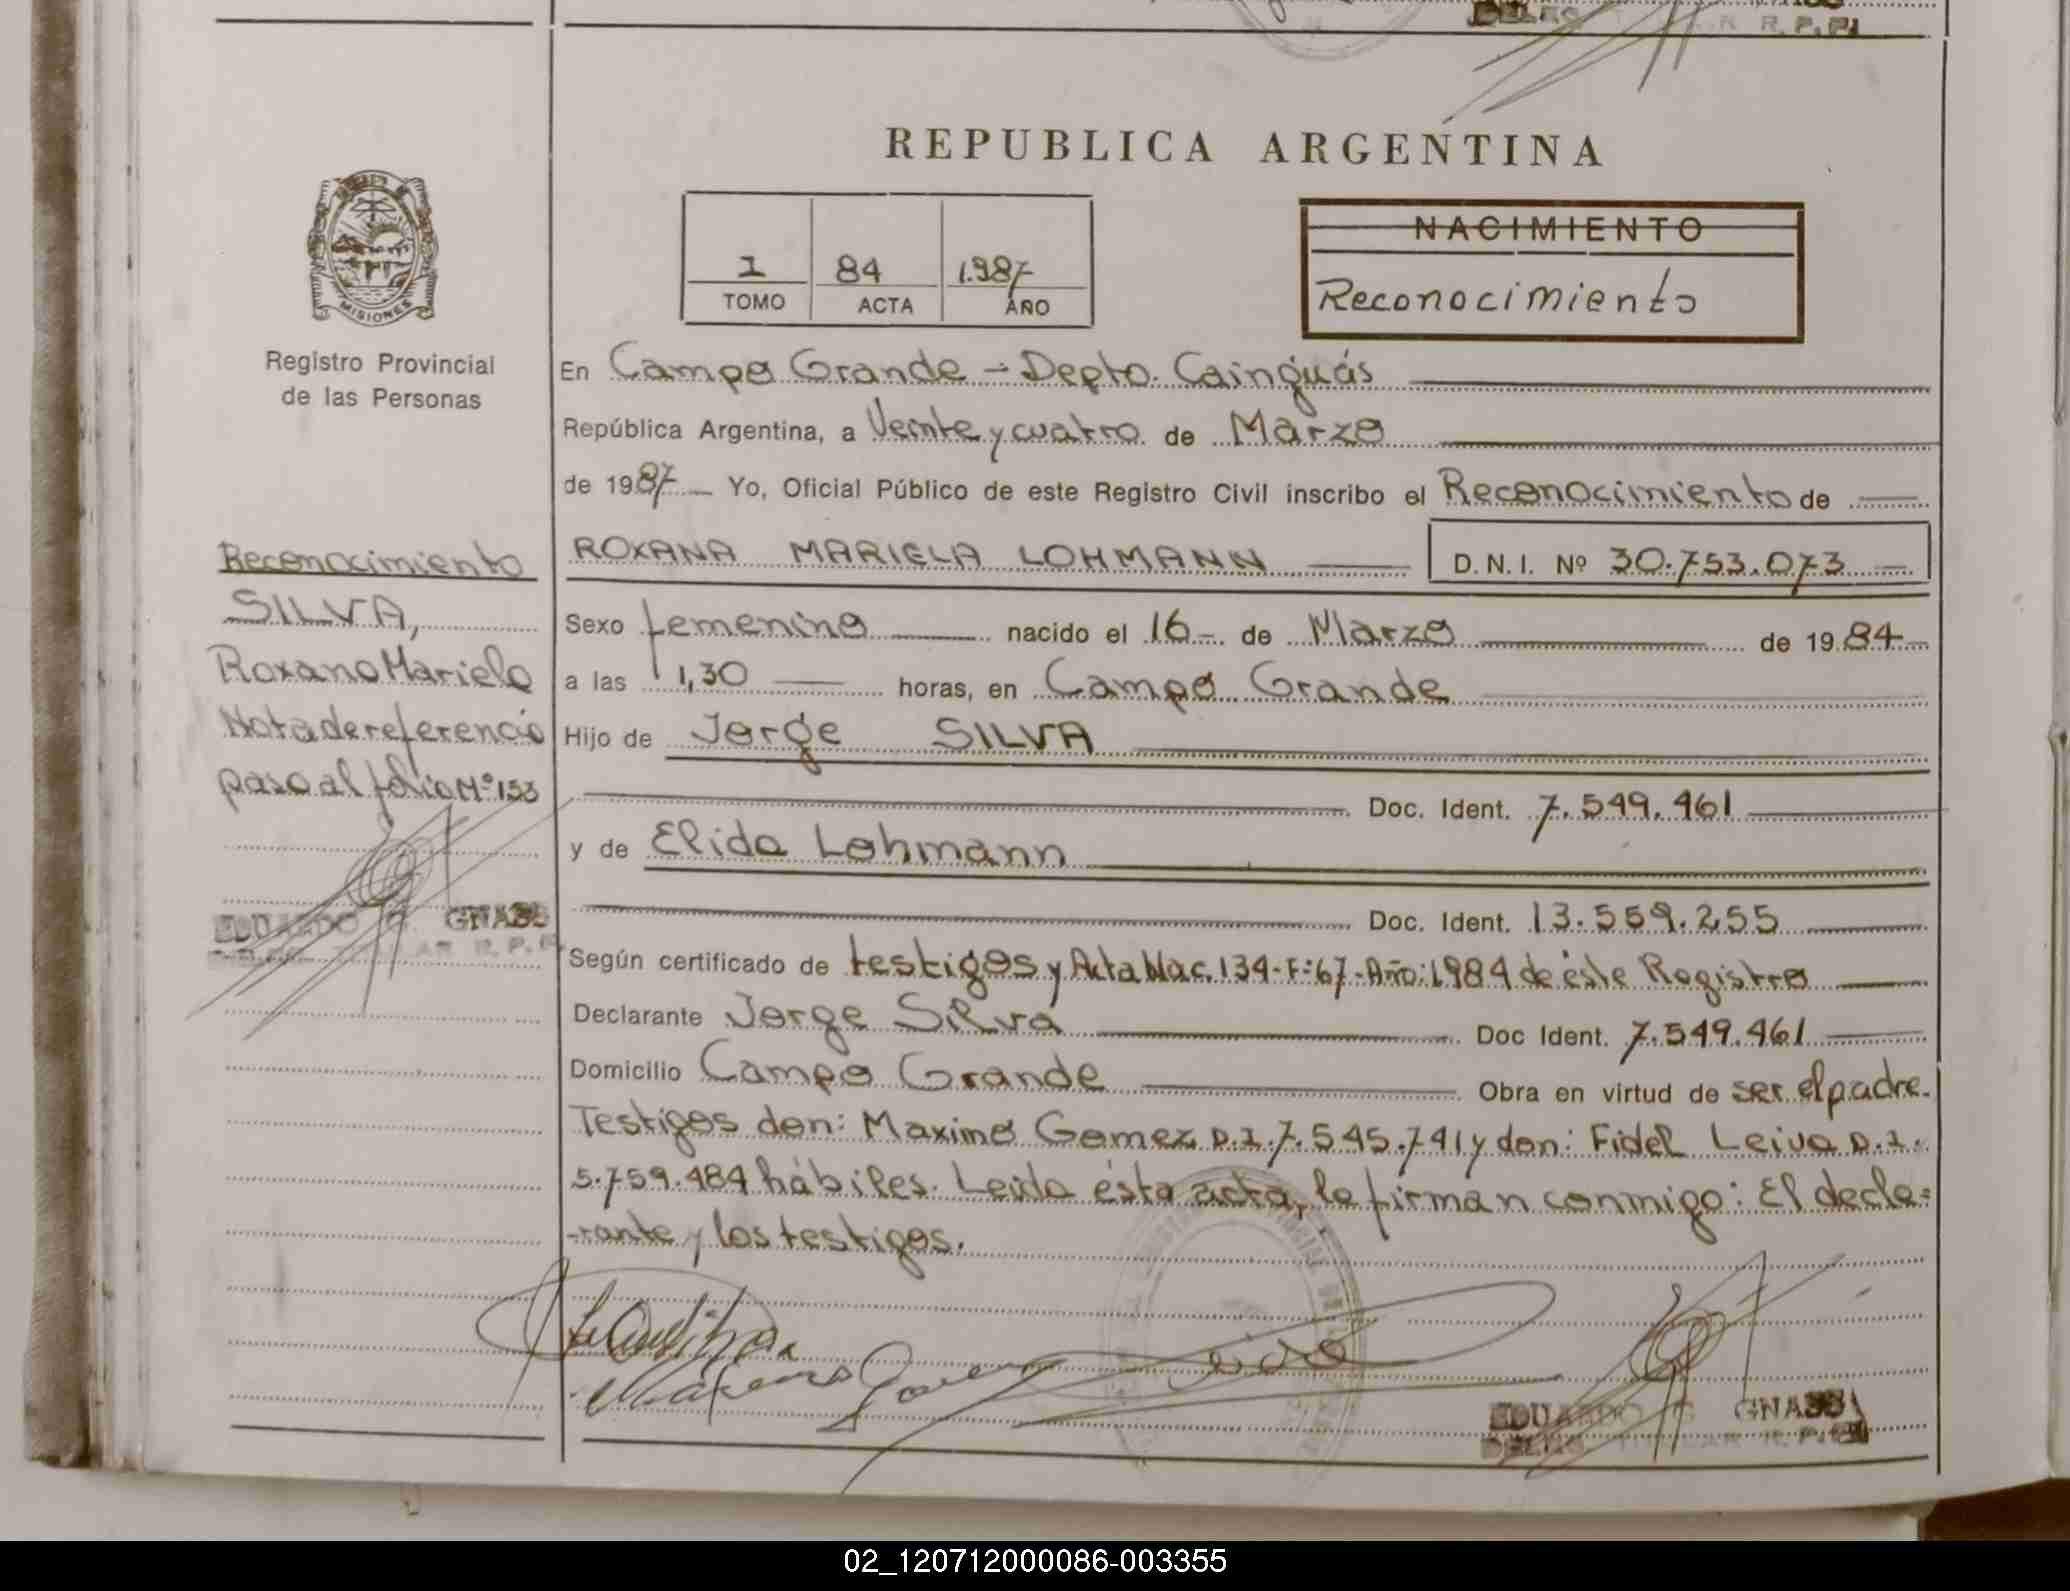 R. P. P.
REPUBLICA ARGENTINA
MISIONES
Registro Provincial
de las Personas
1 84 1.987
TOMO ACTA AÑO
NACIMIENTO
Reconocimiento
En Campo Grande - Depto. Cainguás
República Argentina, a Veinte y cuatro de Marzo
de 1987 Yo, Oficial Público de este Registro Civil inscribo el Reconocimiento de
ROXANA MARIELA LOHMANN D.N.I. Nº 30.753.073
Sexo femenino nacido el 16 de Marzo de 1984
a las 1,30 horas, en Campo Grande
Hijo de Jorge SILVA
Doc. Ident. 7.549.461
y de Elida Lohmann
Doc. Ident. 13.559.255
Según certificado de testigos y Acta Nac. 134-Fº:67-Año:1984 de éste Registro
Declarante Jorge Silva Doc Ident. 7.549.461
Domicilio Campo Grande Obra en virtud de ser el padre.
Testigos don: Maximo Gomez D.I. 7.545.741 y don: Fidel Leiva D.I.
5.759.484 hábiles. Leída ésta acta, la firman conmigo: El decla=
-rante y los testigos.
EDUARDO G. GNASS
TITULAR R. P. P.
Reconocimiento
SILVA,
Roxana Mariela
Nota de referencia
paso al folio Nº 153
EDUARDO G. GNASS
R. P. P.
02_120712000086-003355